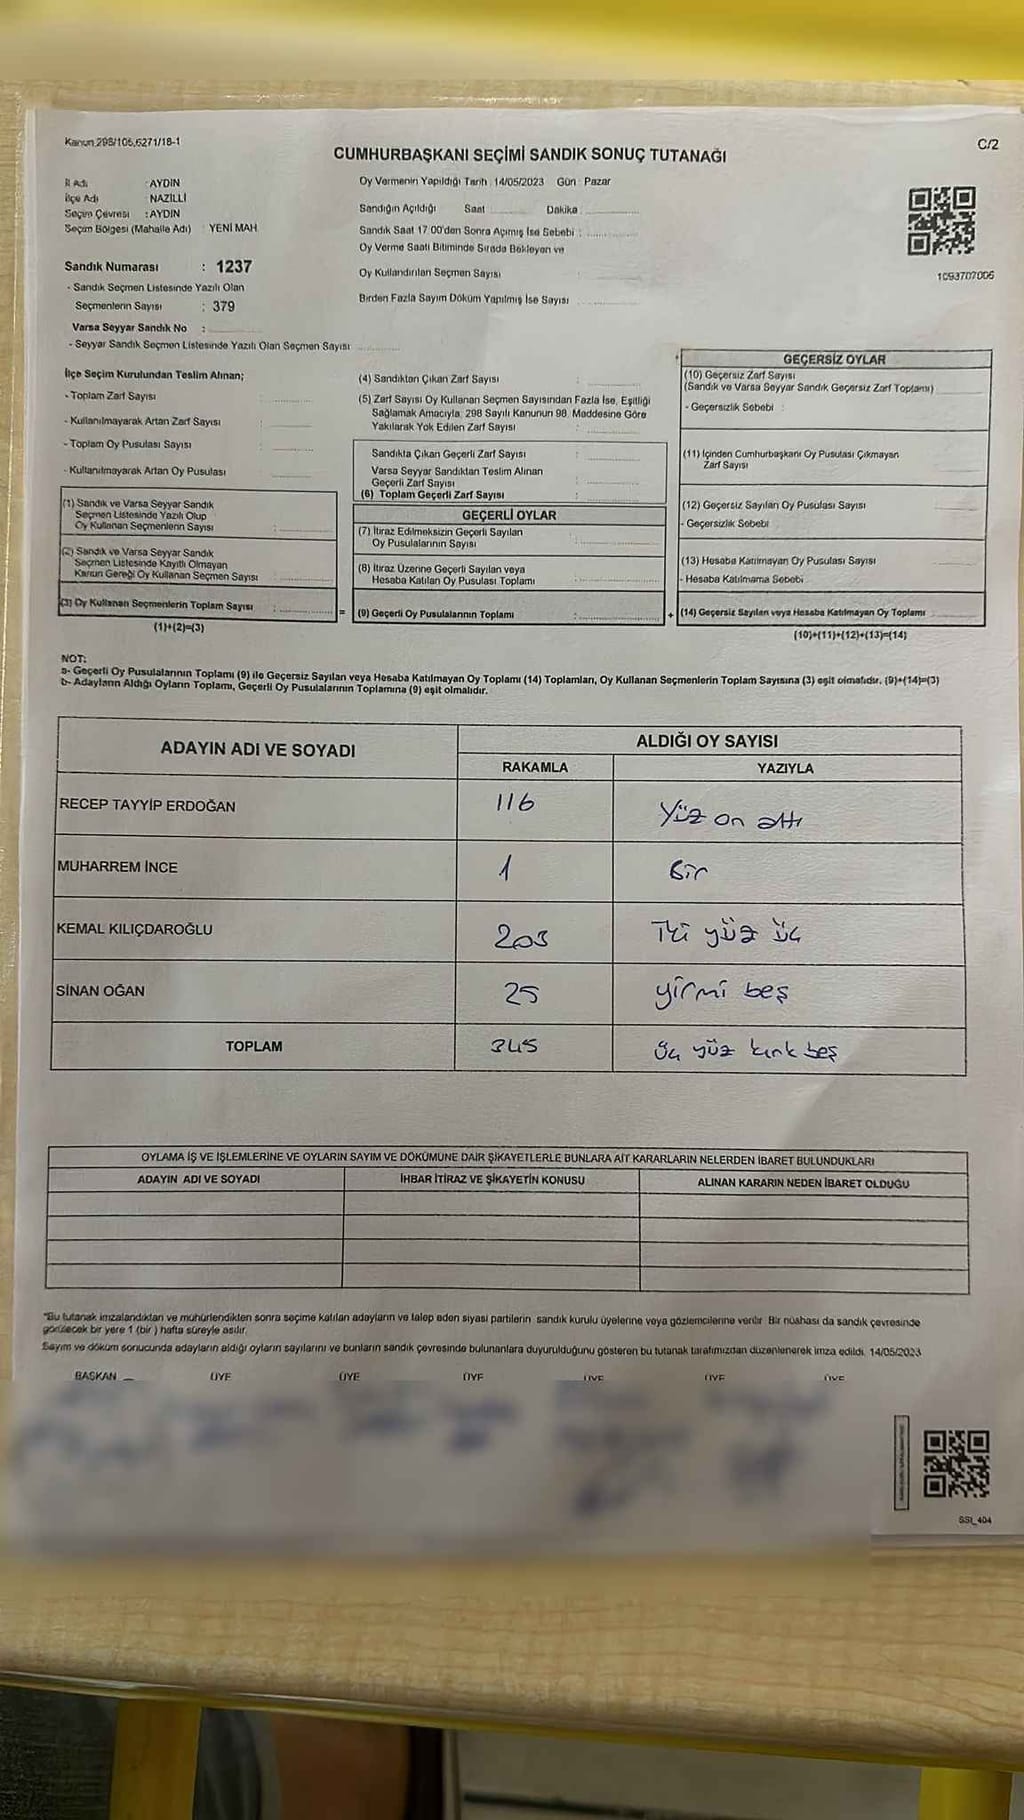 Kanun 298/105,6271/18-1
C/2
CUMHURBAŞKANI SEÇİMİ SANDIK SONUÇ TUTANAĞI
İl Adı : AYDIN
İlçe Adı : NAZİLLİ
Seçim Çevresi : AYDIN
Seçim Bölgesi (Mahalle Adı) : YENİ MAH.
Sandık Numarası : 1237
- Sandık Seçmen Listesinde Yazılı Olan
Seçmenlerin Sayısı : 379
Varsa Seyyar Sandık No :
- Seyyar Sandık Seçmen Listesinde Yazılı Olan Seçmen Sayısı
Oy Vermenin Yapıldığı Tarih : 14/05/2023 Gün : Pazar
Sandığın Açıldığı Saat Dakika
Sandık Saat 17:00'den Sonra Açımış İse Sebebi :
Oy Verme Saati Bitiminde Sırada Bekleyen ve
Oy Kullandırılan Seçmen Sayısı :
Birden Fazla Sayım Döküm Yapılmış İse Sayısı
1093707006
İlçe Seçim Kurulundan Teslim Alınan;
- Toplam Zarf Sayısı :
- Kullanılmayarak Artan Zarf Sayısı :
- Toplam Oy Pusulası Sayısı :
- Kullanılmayarak Artan Oy Pusulası
(1) Sandık ve Varsa Seyyar Sandık
Seçmen Listesinde Yazılı Olup
Oy Kullanan Seçmenlerin Sayısı :
(2) Sandık ve Varsa Seyyar Sandık
Seçmen Listesinde Kayıtlı Olmayan
Kanun Gereği Oy Kullanan Seçmen Sayısı
(3) Oy Kullanan Seçmenlerin Toplam Sayısı : =
(1)+(2)=(3)
(4) Sandıktan Çıkan Zarf Sayısı :
(5) Zarf Sayısı Oy Kullanan Seçmen Sayısından Fazla İse, Eşitliği
Sağlamak Amacıyla, 298 Sayılı Kanunun 98. Maddesine Göre
Yakılarak Yok Edilen Zarf Sayısı :
Sandıkta Çıkan Geçerli Zarf Sayısı :
Varsa Seyyar Sandıktan Teslim Alınan
Geçerli Zarf Sayısı :
(6) Toplam Geçerli Zarf Sayısı :
GEÇERLİ OYLAR
(7) İtiraz Edilmeksizin Geçerli Sayılan
Oy Pusulalarının Sayısı :
(8) İtiraz Üzerine Geçerli Sayılan veya
Hesaba Katılan Oy Pusulası Toplamı :
(9) Geçerli Oy Pusulalarının Toplamı : +
GEÇERSİZ OYLAR
(10) Geçersiz Zarf Sayısı
(Sandık ve Varsa Seyyar Sandık Geçersiz Zarf Toplamı)
- Geçersizlik Sebebi :
(11) İçinden Cumhurbaşkanı Oy Pusulası Çıkmayan
Zarf Sayısı
(12) Geçersiz Sayılan Oy Pusulası Sayısı
- Geçersizlik Sebebi
(13) Hesaba Katılmayan Oy Pusulası Sayısı
- Hesaba Katılmama Sebebi
(14) Geçersiz Sayılan veya Hesaba Katılmayan Oy Toplamı
(10)+(11)+(12)+(13)=(14)
NOT:
a- Geçerli Oy Pusulalarının Toplamı (9) ile Geçersiz Sayılan veya Hesaba Katılmayan Oy Toplamı (14) Toplamları, Oy Kullanan Seçmenlerin Toplam Sayısına (3) eşit olmalıdır. (9)+(14)=(3)
b- Adayların Aldığı Oyların Toplamı, Geçerli Oy Pusulalarının Toplamına (9) eşit olmalıdır.
ADAYIN ADI VE SOYADI ALDIĞI OY SAYISI
RAKAMLA YAZIYLA
RECEP TAYYİP ERDOĞAN 116 Yüz on altı
MUHARREM İNCE 1 Bir
KEMAL KILIÇDAROĞLU 203 İki yüz üç
SİNAN OĞAN 25 yirmi beş
TOPLAM 345 üç yüz kırk beş
OYLAMA İŞ VE İŞLEMLERİNE VE OYLARIN SAYIM VE DÖKÜMÜNE DAİR ŞİKAYETLERLE BUNLARA AİT KARARLARIN NELERDEN İBARET BULUNDUKLARI
ADAYIN ADI VE SOYADI İHBAR İTİRAZ VE ŞİKAYETİN KONUSU ALINAN KARARIN NEDEN İBARET OLDUĞU
*Bu tutanak imzalandıktan ve mühürlendikten sonra seçime katılan adayların ve talep eden siyasi partilerin sandık kurulu üyelerine veya gözlemcilerine verilir. Bir nüshası da sandık çevresinde
görülecek bir yere 1 (bir ) hafta süreyle asılır.
Sayım ve döküm sonucunda adayların aldığı oyların sayılarını ve bunların sandık çevresinde bulunanlara duyurulduğunu gösteren bu tutanak tarafımızdan düzenlenerek imza edildi. 14/05/2023
BAŞKAN ÜYE ÜYE ÜYE ÜYE ÜYE ÜYE
SSI_404